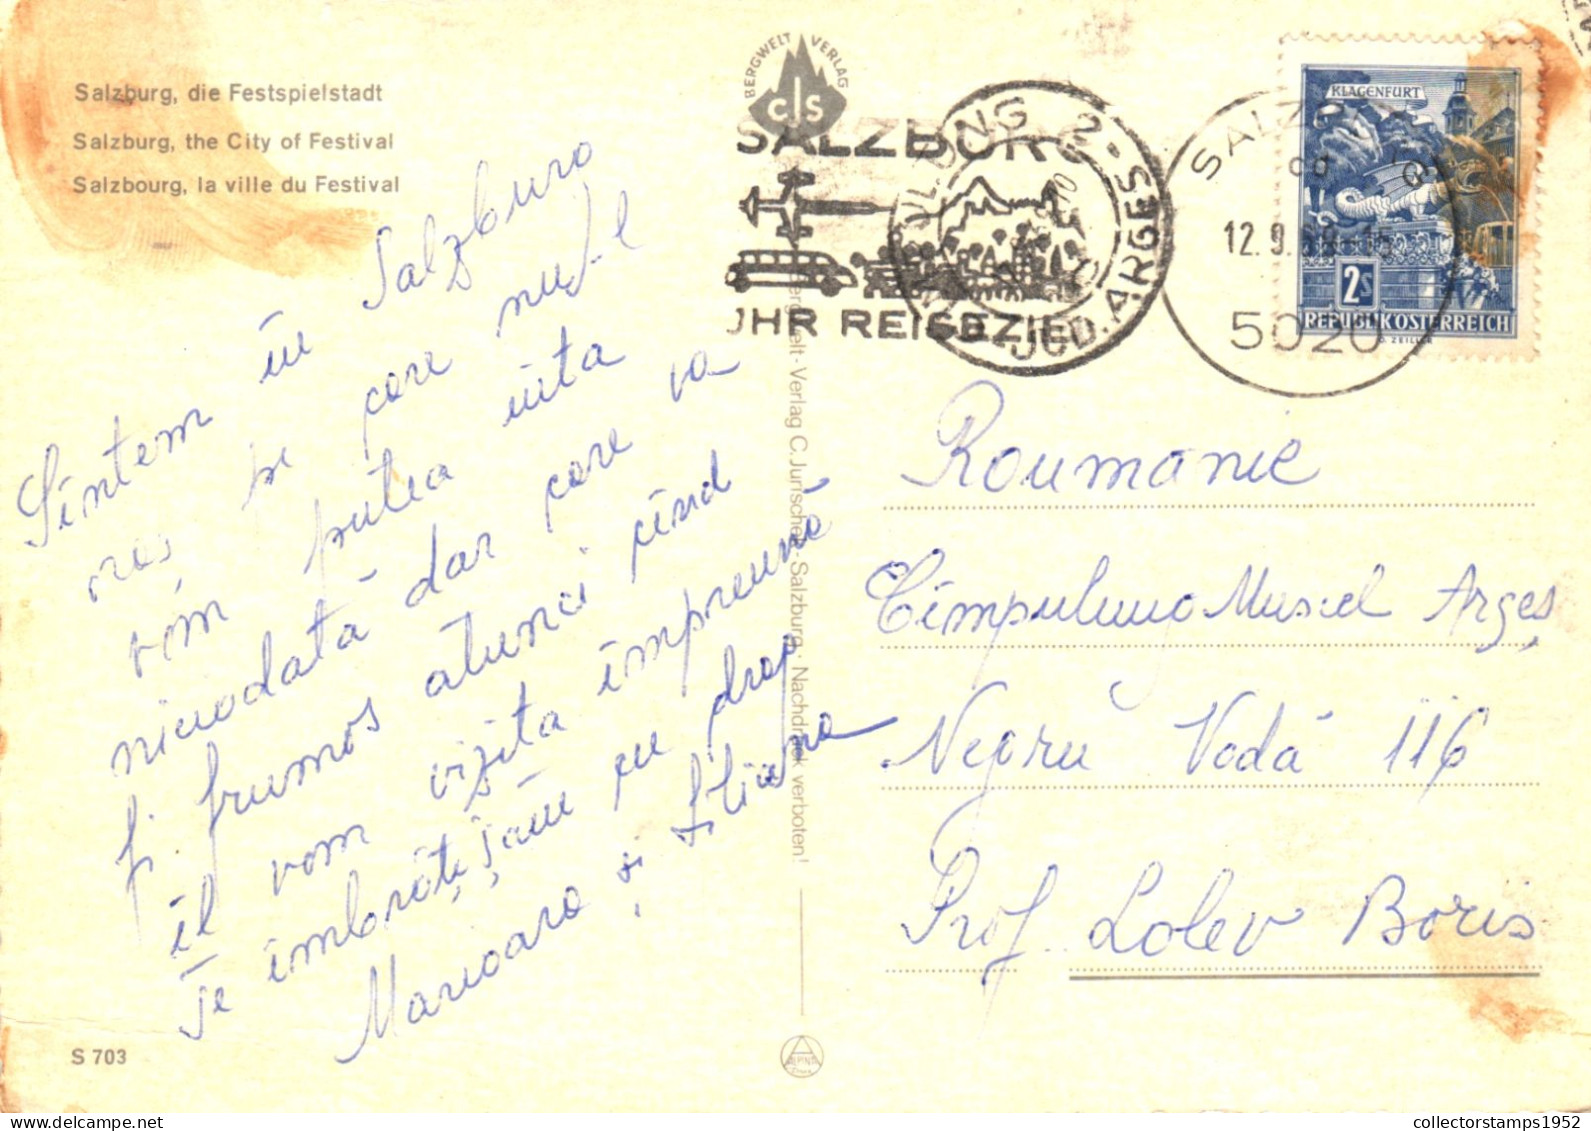 Salzburg, die Festspielstadt
Salzburg, the City of Festival
Salzbourg, la ville du Festival
BERGWELT VERLAG
CJS
SALZBURG
JHR REISEZIEL
JUD. ARGEȘ
SALZBURG
12.9.
5020
KLAGENFURT
2S
REPUBLIK ÖSTERREICH
O. ZEILLER
Sîntem în Salzburg
oraș pe care nu-l
vom putea uita
niciodată dar care va
fi frumos atunci cînd
îl vom vizita împreună
Te îmbrățișăm cu drag
Marioara și Liliana
Bergwelt-Verlag C. Jurischek · Salzburg · Nachdruck verboten!
Roumanie
Cîmpulung Muscel Argeș
Negru Vodă 116
Prof. Lolev Boris
S 703
collectorstamps1952